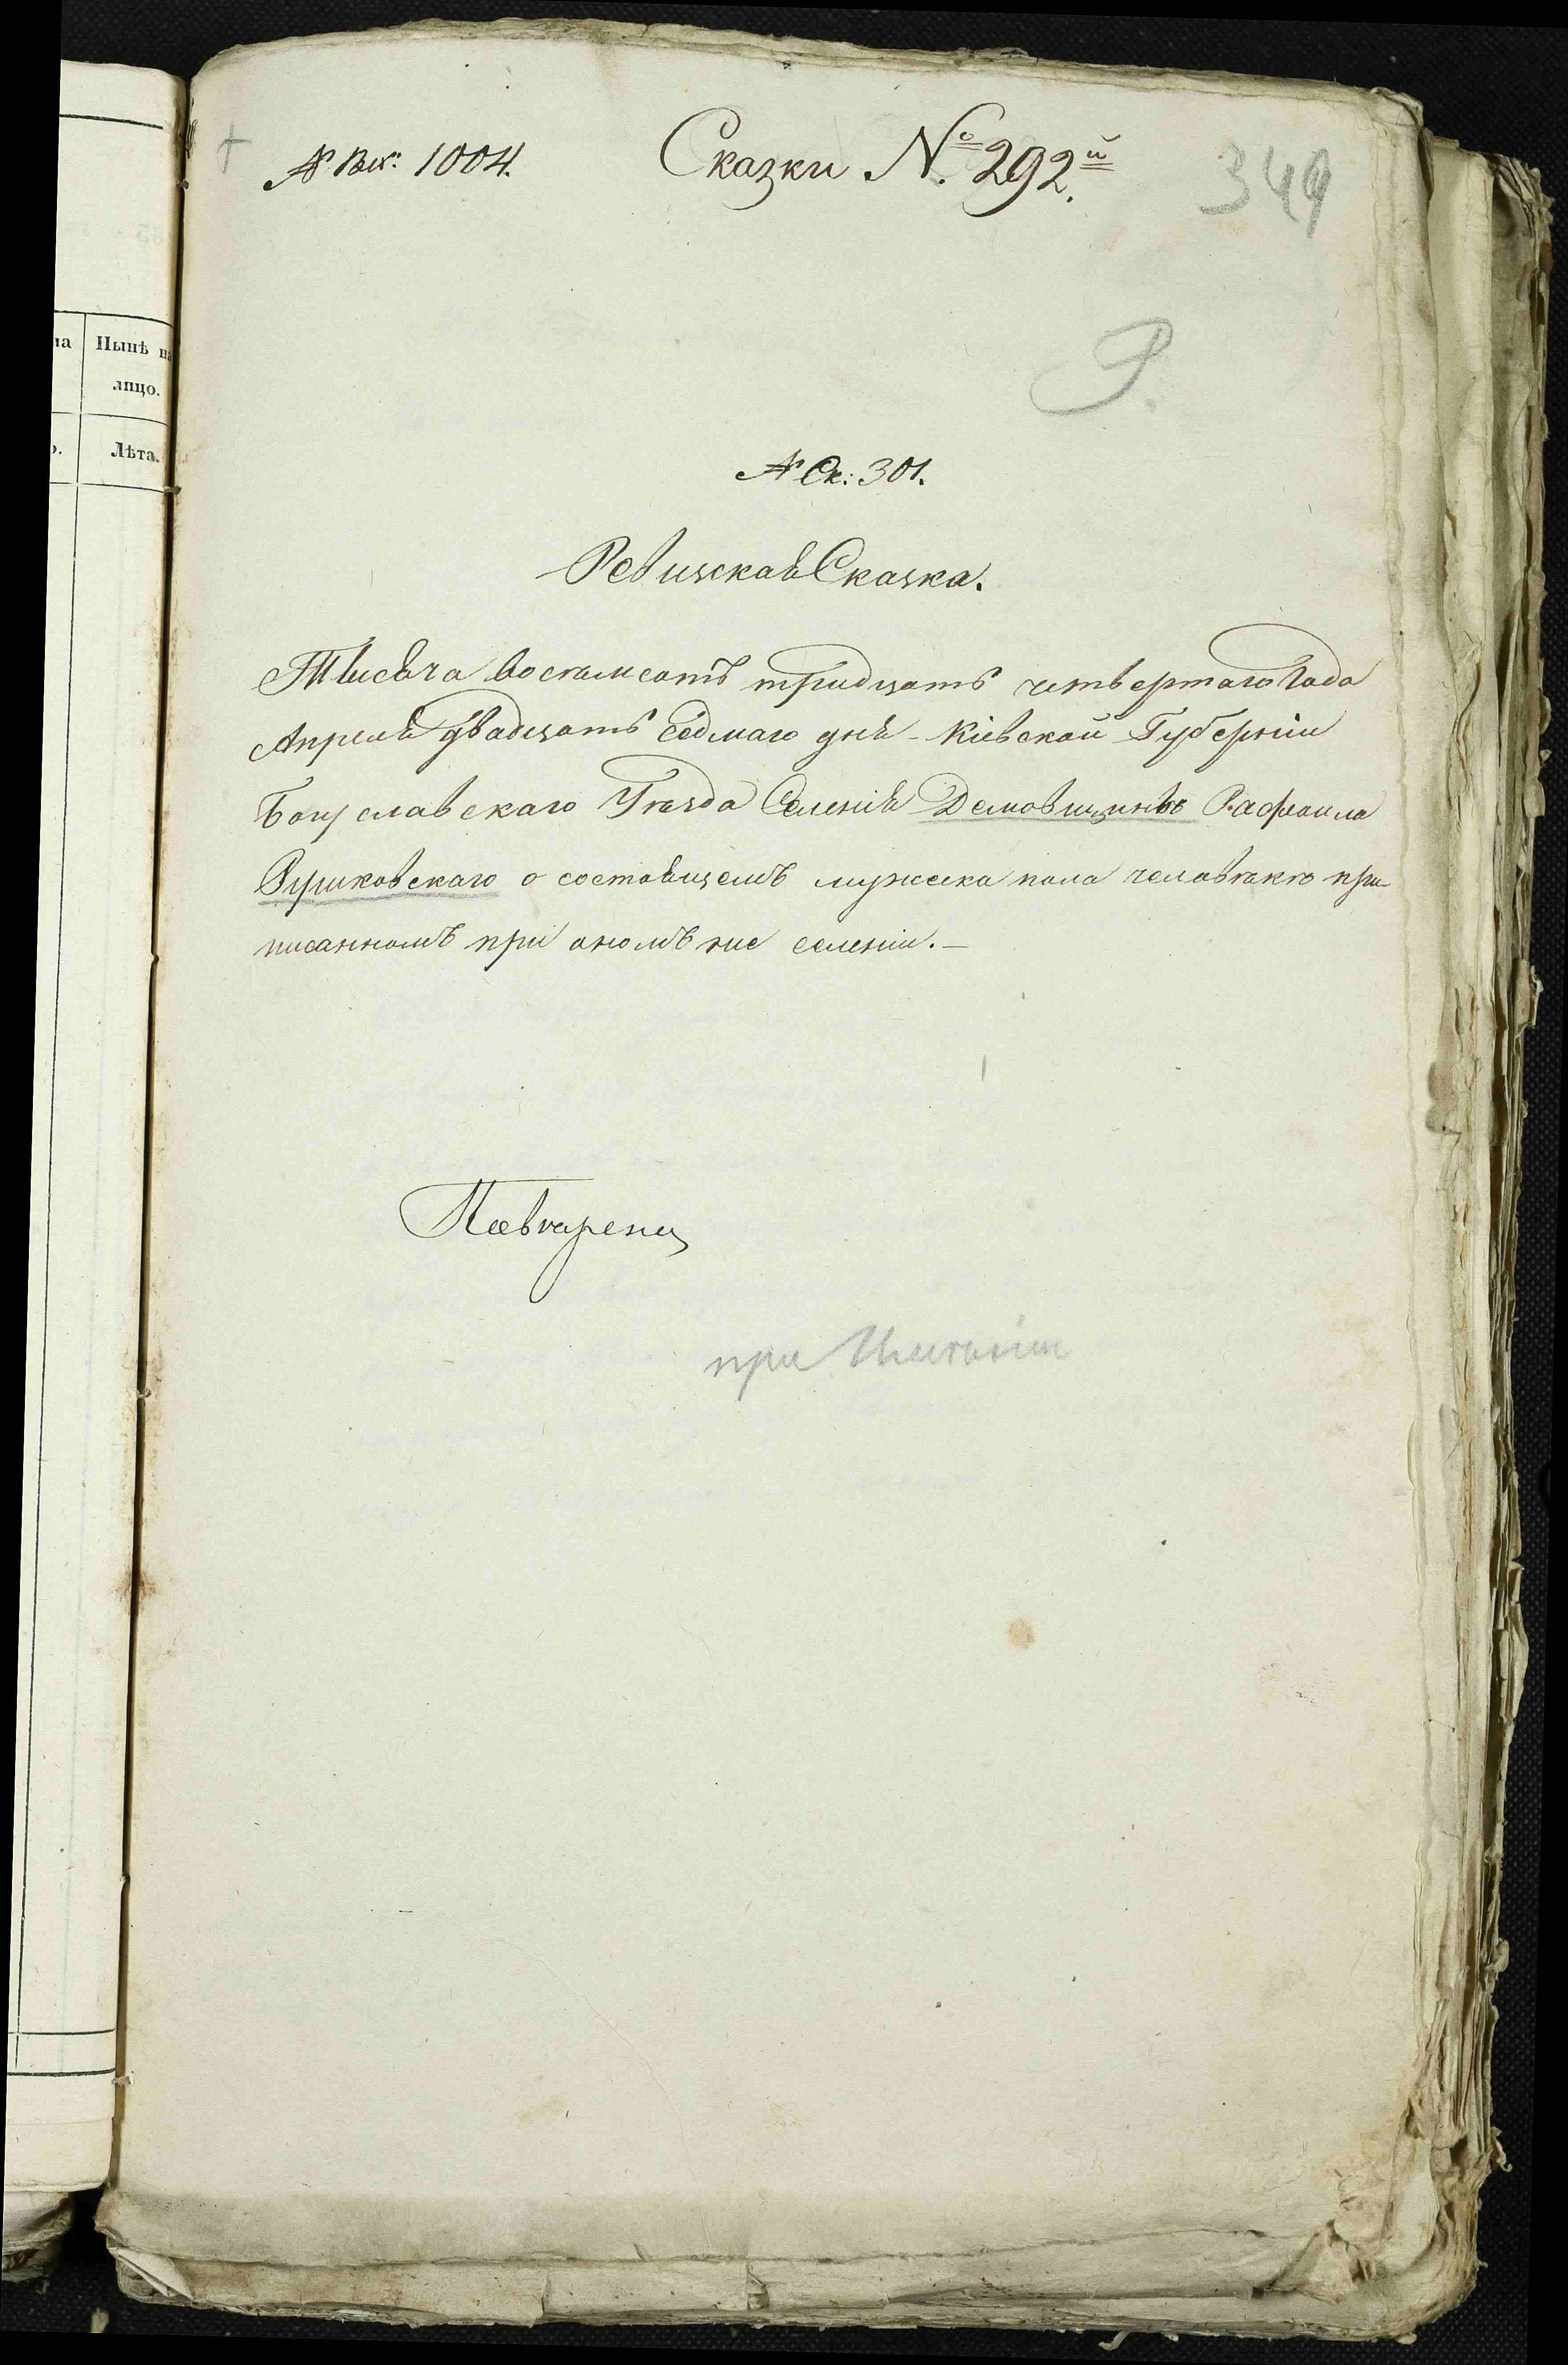 на
Нынѣ на
лицо.
Лѣта.
№ Вх: 1004. Сказки №. 292й. 349
Р.
№ Ск: 301.
Ревизская Сказка.
Тысяча восемсотъ тридцать четвертаго Года
Апреля двадцать седмаго дня - Кіевской Губерніи
Богуславскаго Уезда Селенія Демовщины Рафаила
о состоящемъ мужеска пола человѣкѣ при-
писанномъ при ономъ же селеніи.-
при